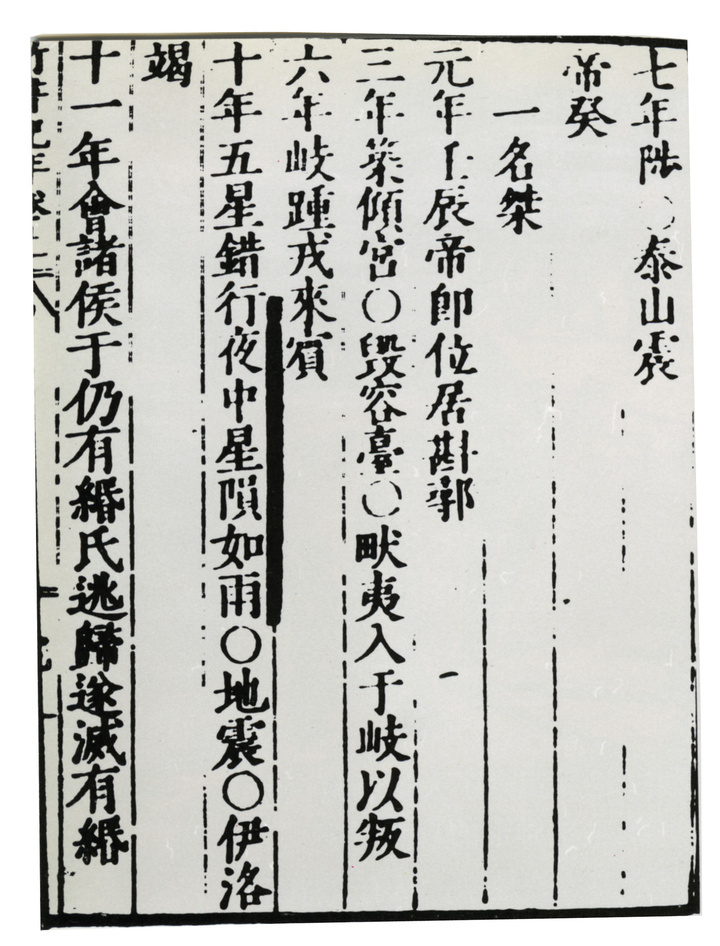 七年陟〇泰山震
帝癸
一名桀
元年壬辰帝即位居斟鄩
三年築傾宮〇毀容臺〇畎夷入于岐以叛
六年岐踵戎來賓
十年五星錯行夜中星隕如雨〇地震〇伊洛
竭
十一年會諸侯于仍有緡氏逃歸遂滅有緡